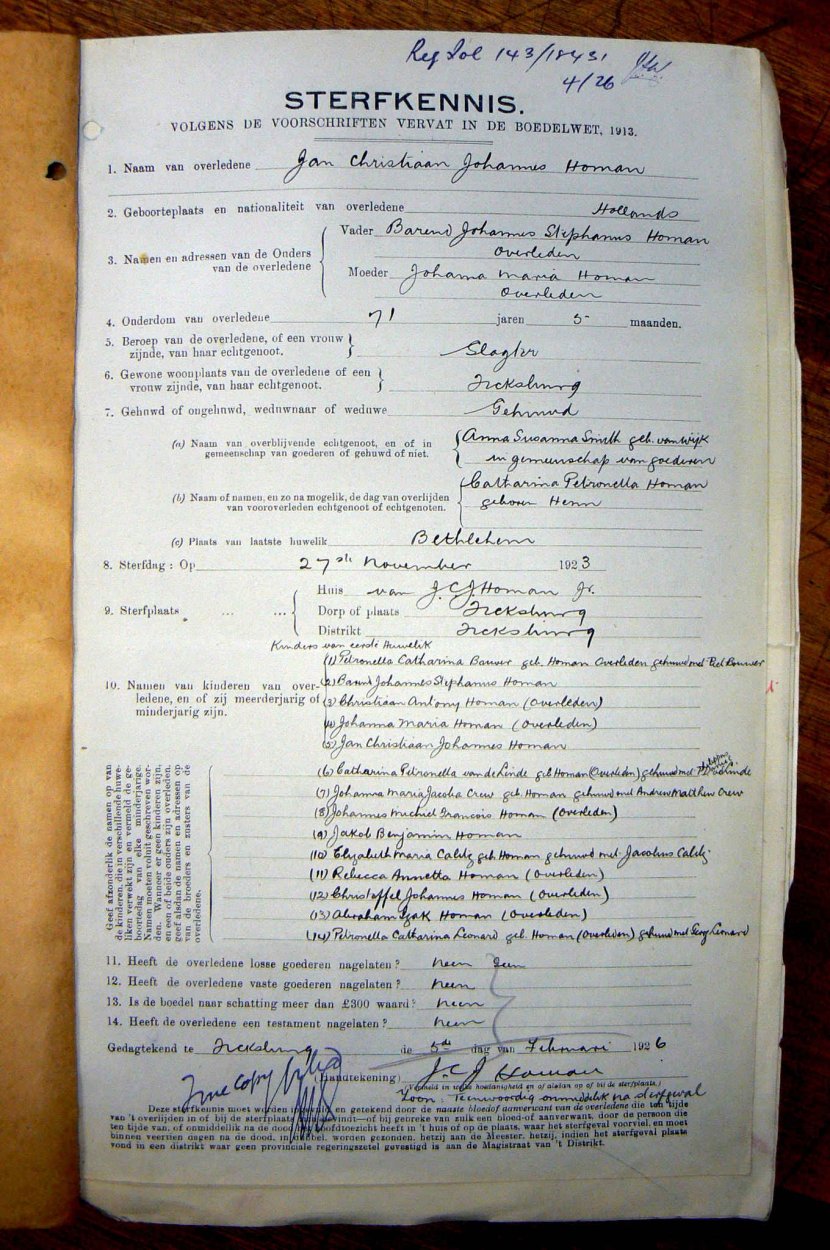 Reg Sol 143/18431
4/26
STERFKENNIS.
VOLGENS DE VOORSCHRIFTEN VERVAT IN DE BOEDELWET, 1913.
1. Naam van overledene Jan Christiaan Johannes Homan
2. Geboorteplaats en nationaliteit van overledene Hollands
3. Namen en adressen van de Ouders van de overledene
Vader Barend Johannes Stephanus Homan
Overleden
Moeder Johanna Maria Homan
Overleden
4. Onderdom van overledene 71 jaren 5 maanden.
5. Beroep van de overledene, of een vrouw zijnde, van haar echtgenoot. Slagter
6. Gewone woonplaats van de overledene of een vrouw zijnde, van haar echtgenoot. Ficksburg
7. Gehuwd of ongehuwd, weduwnaar of weduwe Gehuwd
(a) Naam van overblijvende echtgenoot, en of in gemeenschap van goederen of gehuwd of niet.
Anna Susanna Smith geb. van Wijk
in gemeenschap van goederen
(b) Naam of namen, en zo na mogelik, de dag van overlijden van vooroverleden echtgenoot of echtgenoten.
Catharina Petronella Homan
geboren Henn
(c) Plaats van laatste huwelik Bethlehem
8. Sterfdag: Op 27ste November 1923
9. Sterfplaats ... ...
Huis van J.C.J. Homan Jr.
Dorp of plaats Ficksburg
Distrikt Ficksburg
Kinders van eerste Huwelik
10. Namen van kinderen van overledene, en of zij meerderjarig of minderjarig zijn.
(1) Petronella Catharina Bouwer geb. Homan Overleden gehuwd met Piet Bouwer
(2) Barend Johannes Stephanus Homan
(3) Christiaan Antony Homan (Overleden)
(4) Johanna Maria Homan (Overleden)
(5) Jan Christiaan Johannes Homan
Geef afzonderlik de namen op van de kinderen, die in verschillende huweliken verwekt zijn en vermeld de geboortedag van elke minderjarige. Namen moeten voluit geschreven worden. Wanneer er geen kinderen zijn, en een of beide ouders zijn overleden, geef alsdan de namen en adressen op van de broeders en zusters van de overledene.
(6) Catharina Petronella van de Linde geb Homan (Overleden) gehuwd met
(7) Johanna Maria Jacoba Crew geb. Homan gehuwd met Andrew Matthew Crew
(8) Johannes Michiel Francois Homan (Overleden)
(9) Jakob Benjamin Homan
(10) Elizabeth Maria Calitz geb. Homan gehuwd met Jacobus Calitz
(11) Rebecca Annetta Homan (Overleden)
(12) Christoffel Johannes Homan (Overleden)
(13) Abraham Izak Homan (Overleden)
(14) Petronella Catharina Leonard geb. Homan (Overleden) gehuwd met Georg Leonard
11. Heeft de overledene losse goederen nagelaten? neen
12. Heeft de overledene vaste goederen nagelaten? neen
13. Is de boedel naar schatting meer dan £300 waard? neen
14. Heeft de overledene een testament nagelaten? neen
Gedagtekend te Ficksburg de 5de dag van Februari 1926
(Handtekening) J.C.J Homan
(Vermeld in welke hoedanigheid en of alsdan op of bij de sterfplaats.)
True copy
Zoon: Teenwoordig onmidelik na sterfgeval
Deze sterfkennis moet worden en getekend door de naaste bloed of aanverwant van de overledene die ten tijde
van 't overlijden in of bij de sterfplaats of bij gebreke van zulk een bloed- of aanverwant, door de persoon die
ten tijde van, of onmiddellik na de dood het hoofdtoezicht heeft in 't huis of op de plaats, waar het sterfgeval voorviel, en moet
binnen veertien dagen na de dood, in dubbel, worden gezonden, hetzij aan de Meester, hetzij, indien het sterfgeval plaats
vond in een distrikt waar geen provinciale regeringszetel gevestigd is aan de Magistraat van 't Distrikt.